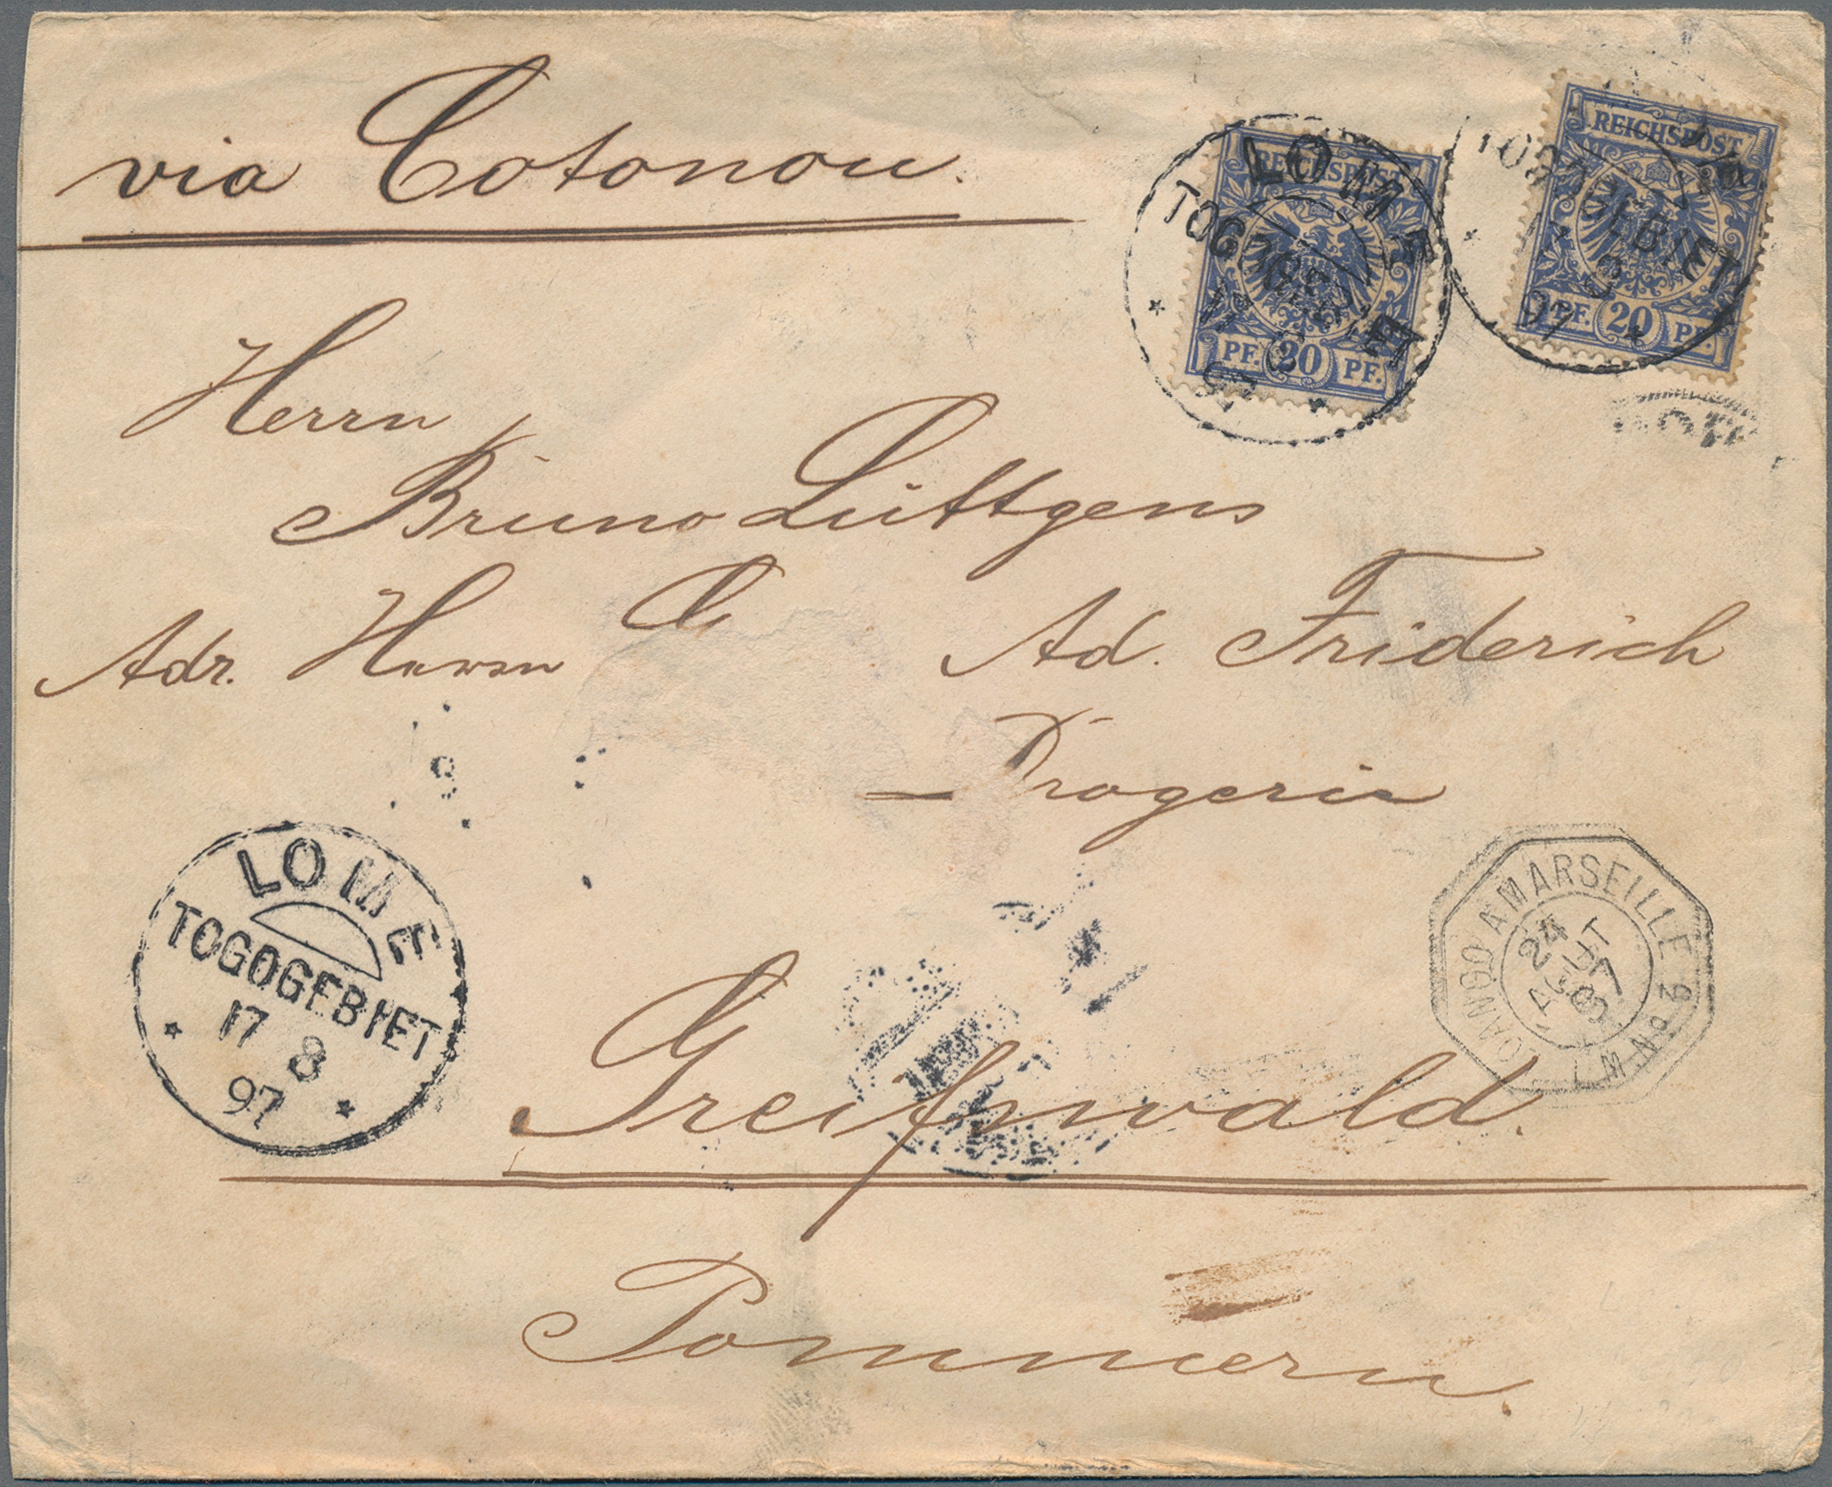 via Cotonou.
REICHSPOST
PF. 20 PF.
LOME
TOGOGEBIET
17 8
97
REICHSPOST
PF. 20 PF.
TOGOGEBIET
17 8
97
Herrn
Bruno Lüttgens
Adr. Herrn Ad. Friderich
Drogerie
LOME
TOGOGEBIET
17 8
97
LOANGO A MARSEILLE
24
AOUT
97
L.M. Nº 2
Greifswald.
Pommern.